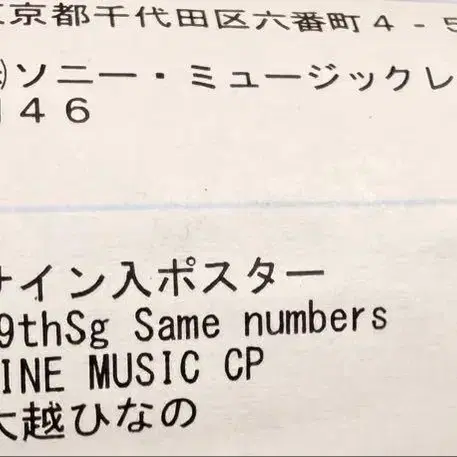 京都千代田区六番町4-5
ソニー・ミュージックレ
46
サイン入ポスター
9thSg Same numbers
INE MUSIC CP
大越ひなの